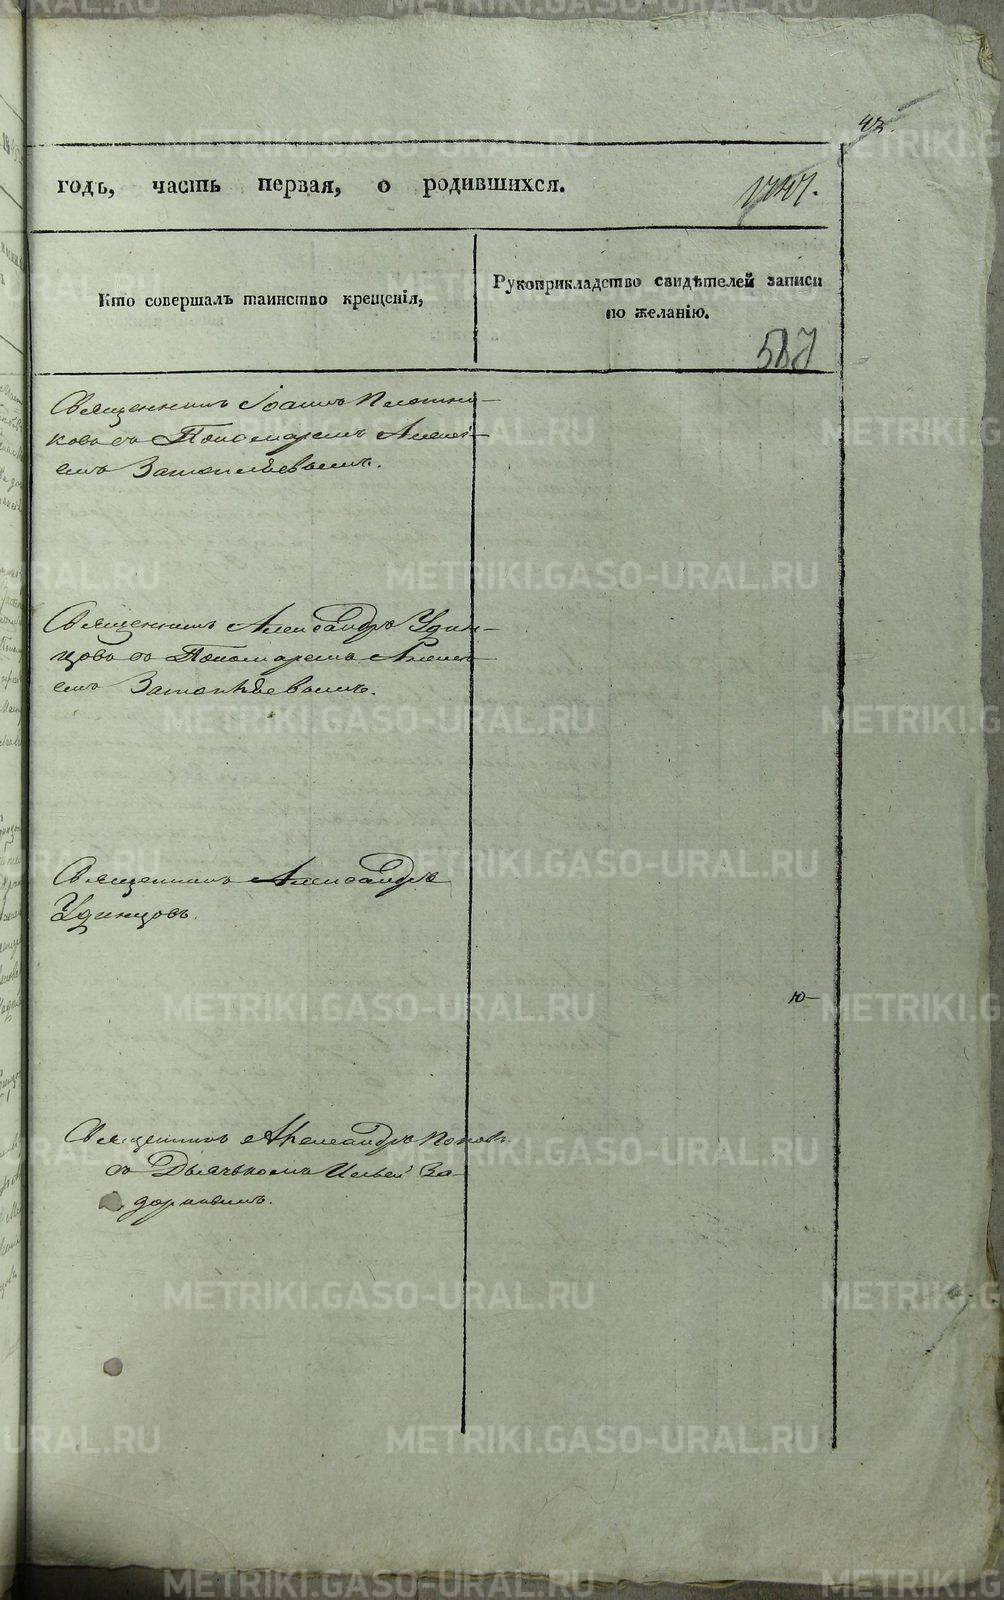 42.
годъ, часть первая, о родившихся.
Кто совершалъ таинство крещенія,
Рукоприкладство свидѣтелей записи
по желанію.
Священникъ Іоаннъ Плотни-
ковъ съ Пономаремъ Алексѣ-
емъ
Священникъ Александръ Удин-
цовъ съ Пономаремъ Алексѣ-
емъ
Священникъ Александръ
Удинцовъ.
Ю-
Священникъ Александръ Поповъ
съ Дьячкомъ Ильей За-
дорнымъ.
METRIKI.GASO-URAL.RU